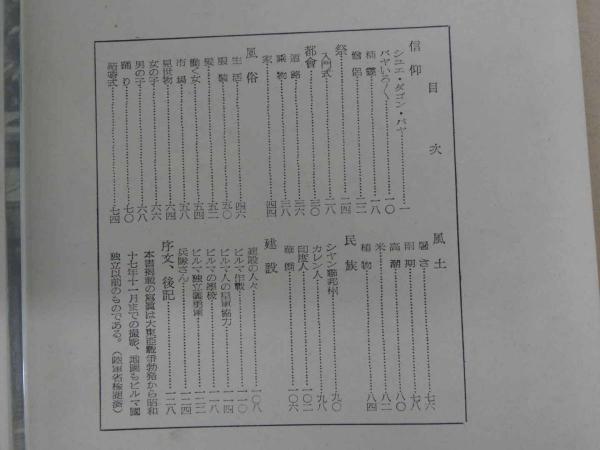 目次
信仰
シユエ・ダゴン・パヤ……一
パヤいろ〳〵……一〇
精靈……一六
僧侶……二二
祭……二四
入門式……二八
都會……三〇
道路……三六
乘物……三八
家……四四
風俗
生活……四六
服裝……五〇
髮……五二
働く女……五四
市場……五八
見世物……六四
女の子……六六
男の子……六八
踊り……七〇
結婚式……七四
風土
暑さ……七六
雨期……七八
高潮……八〇
米……八二
植物……八四
民族
シヤン聯邦州……九〇
カレン人……九八
印度人……一〇二
華僑……一〇六
建設
建設の人々……一〇八
ビルマ作戰……一一〇
ビルマ人の皇軍協力……一一四
ビルマの學校……一一八
ビルマ獨立義勇軍……一二二
兵隊さん……一二四
序文、後記……一二八
本書揭載の寫眞は大東亞戰爭勃發から昭和
十七年十一月までの撮影、地圖もビルマ國
獨立以前のものである。（陸軍省檢閱濟）